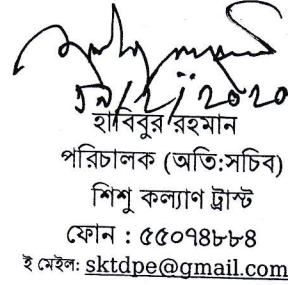 হাবিবুর রহমান
পরিচালক (অতি:সচিব)
শিশু কল্যাণ ট্রাস্ট
ফোন : ৫৫০৭৪৮৮৪
ই মেইল: sktdpe@gmail.com